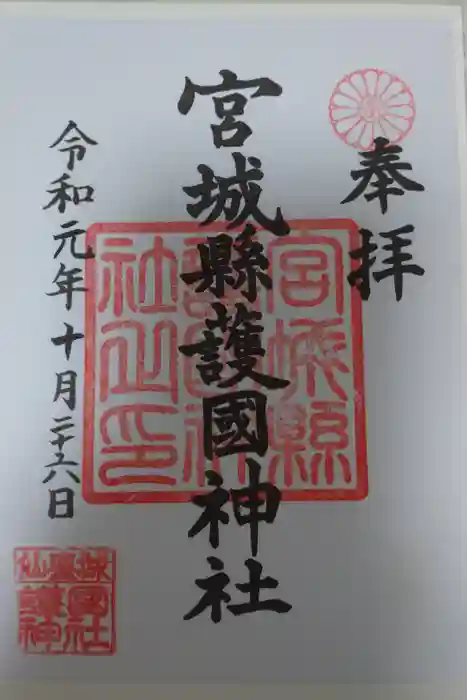 奉拝
宮城縣護國神社
令和元年十月二十六日
宮城縣
護國神
社之印
仙臺城
護國
神社